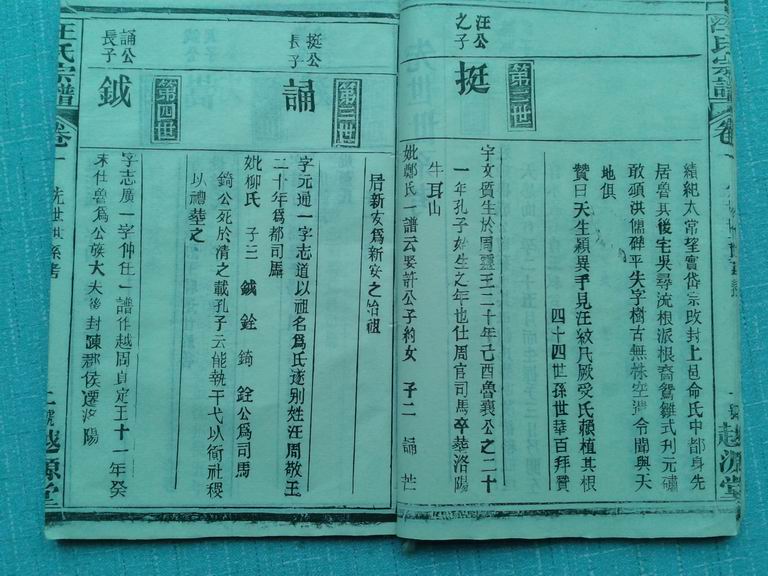 汪氏宗譜
績紀太常望實岱宗改封上邑命氏中都身先
居魯其後宅吳尋流根派根裔鴛雛式刋元礄
敢頌洪儒碑平失字樹古無株空濟令聞與天
地俱
贊曰天生頴異手見汪紋氏厥受氏賴植其根
四十四世孫世華百拜贊
越源堂
汪公
之子
第二世
挺
字文質生於周靈王二十年己酉魯襄公之二十
一年孔子始生之年也仕周官司馬卒葬洛陽
牛耳山
妣鄭氏一譜云娶許公子約女 子二 誦 芒
居新安為新安之始祖
挺公
長子
第三世
誦
字元通一字志道以祖名為氏遂别姓汪周敬王
二十年為都司馬
妣柳氏 子三 鉞 銓 錡 銓公為司馬
錡公死於清之載孔子云能執干戈以衛社稷
以禮塟之
誦公
長子
第四世
鉞
字志廣一字仲仕一譜作越周貞定王十一年癸
未仕魯為公族大夫後封陳郡侯遷洛陽
汪氏宗譜
卷一
先世世系考
二號
越源堂